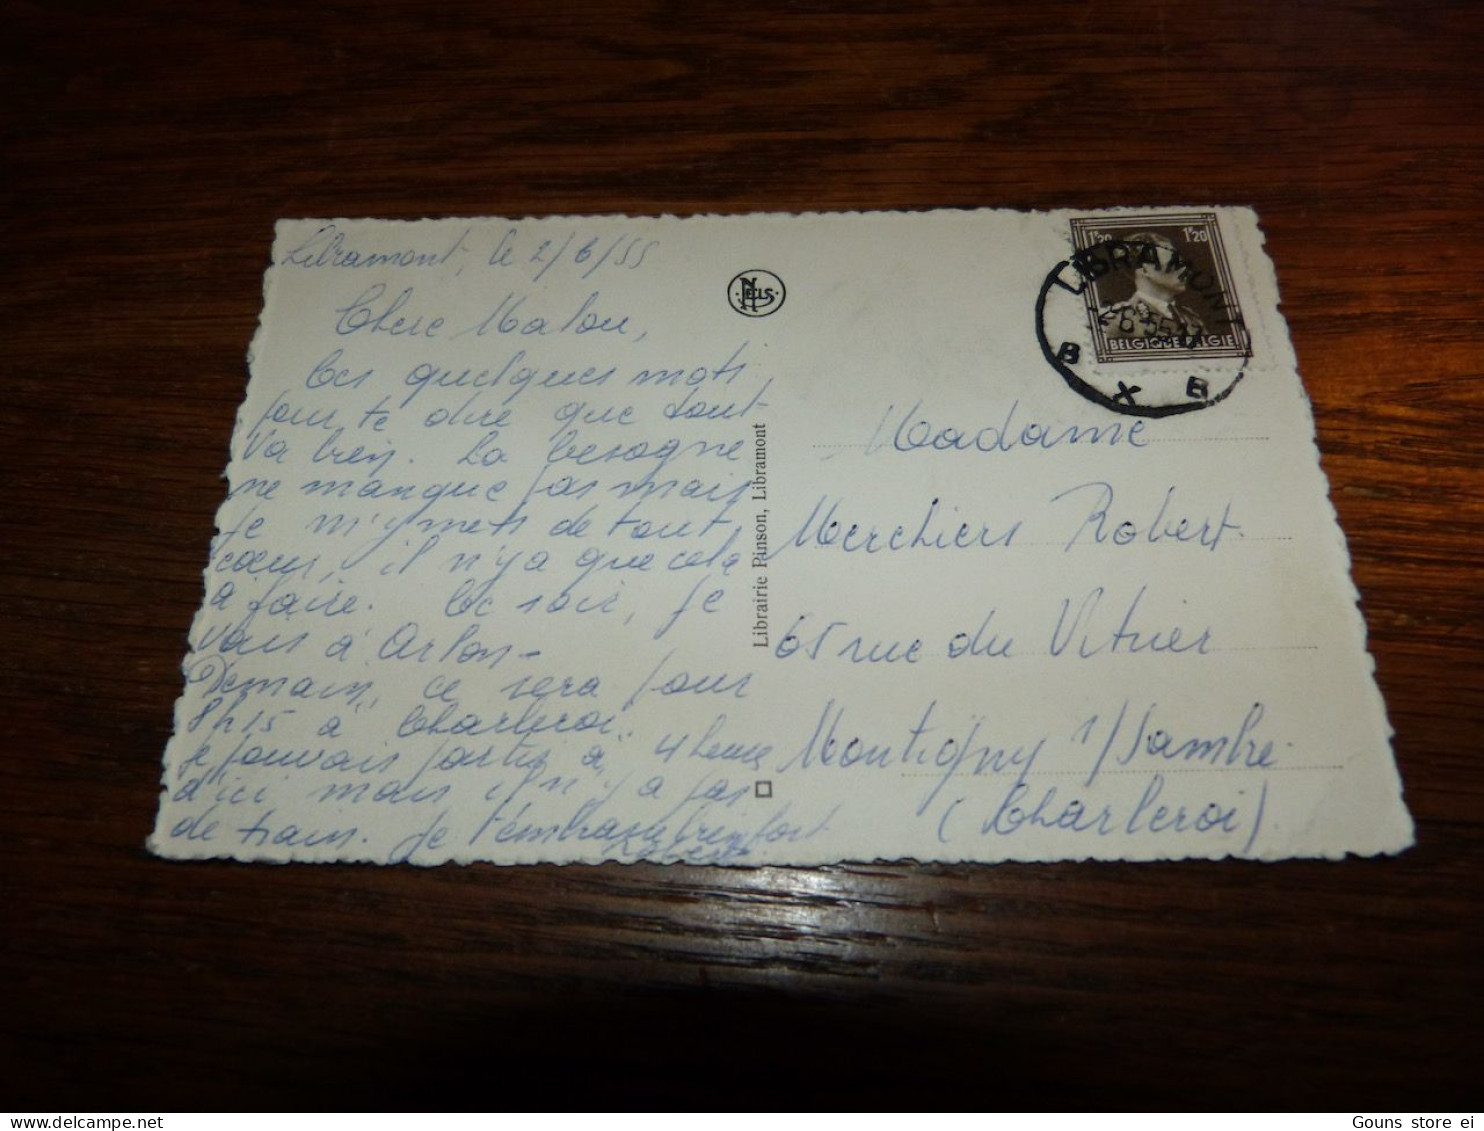 Libramont, le 2/6/55
Chere Malou,
Ces quelques mots
pour te dire que tout
va bien. La besogne
ne manque pas mais
je m'y mets de tout
cœur, il n'y a que cela
à faire. Ce soir, je
vais à Arlon -
Demain, ce sera pour
8h15 à Charleroi.
Je pouvais partir à 4 heures
d'ici mais il n'y a pas
de train. Je t'embrasse bien fort
Robert
NELS
Librairie Pinson, Libramont
1F20 1F20
BELGIQUE BELGIE
LIBRAMONT
2-6-55
B X B
Madame
Merchiers Robert
65 rue du Vivier
Montigny s/Sambre
(Charleroi).
Gouns store ei